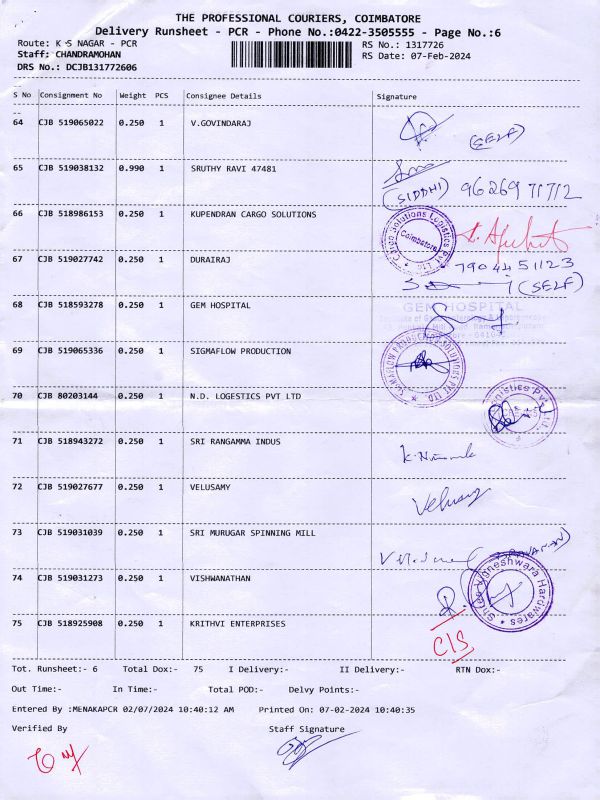 THE PROFESSIONAL COURIERS, COIMBATORE
Delivery Runsheet - PCR - Phone No.:0422-3505555 - Page No.:6
Route: K S NAGAR - PCR
RS No.: 1317726
Staff: CHANDRAMOHAN
RS Date: 07-Feb-2024
DRS No.: DCJB131772606
S No Consignment No Weight PCS Consignee Details Signature
64 CJB 519065022 0.250 1 V.GOVINDARAJ
(SELF)
65 CJB 519038132 0.990 1 SRUTHY RAVI 47481
(SIDDHI) 9626971712
66 CJB 518986153 0.250 1 KUPENDRAN CARGO SOLUTIONS
Cargo Solutions Logistics Pvt Ltd
Coimbatore
67 CJB 519027742 0.250 1 DURAIRAJ
7904451123
(SELF)
68 CJB 518593278 0.250 1 GEM HOSPITAL
GEM HOSPITAL
69 CJB 519065336 0.250 1 SIGMAFLOW PRODUCTION
SIGMAFLOW PRODUCTION SOLUTIONS PVT LTD
70 CJB 80203144 0.250 1 N.D. LOGESTICS PVT LTD
Logistics Pvt. Ltd.
71 CJB 518943272 0.250 1 SRI RANGAMMA INDUS
72 CJB 519027677 0.250 1 VELUSAMY
Velusamy
73 CJB 519031039 0.250 1 SRI MURUGAR SPINNING MILL
74 CJB 519031273 0.250 1 VISHWANATHAN
Shree Vigneshwara Hardwares
75 CJB 518925908 0.250 1 KRITHVI ENTERPRISES
C/S
Tot. Runsheet:- 6 Total Dox:- 75 I Delivery:- II Delivery:- RTN Dox:-
Out Time:- In Time:- Total POD:- Delvy Points:-
Entered By :MENAKAPCR 02/07/2024 10:40:12 AM Printed On: 07-02-2024 10:40:35
Verified By Staff Signature